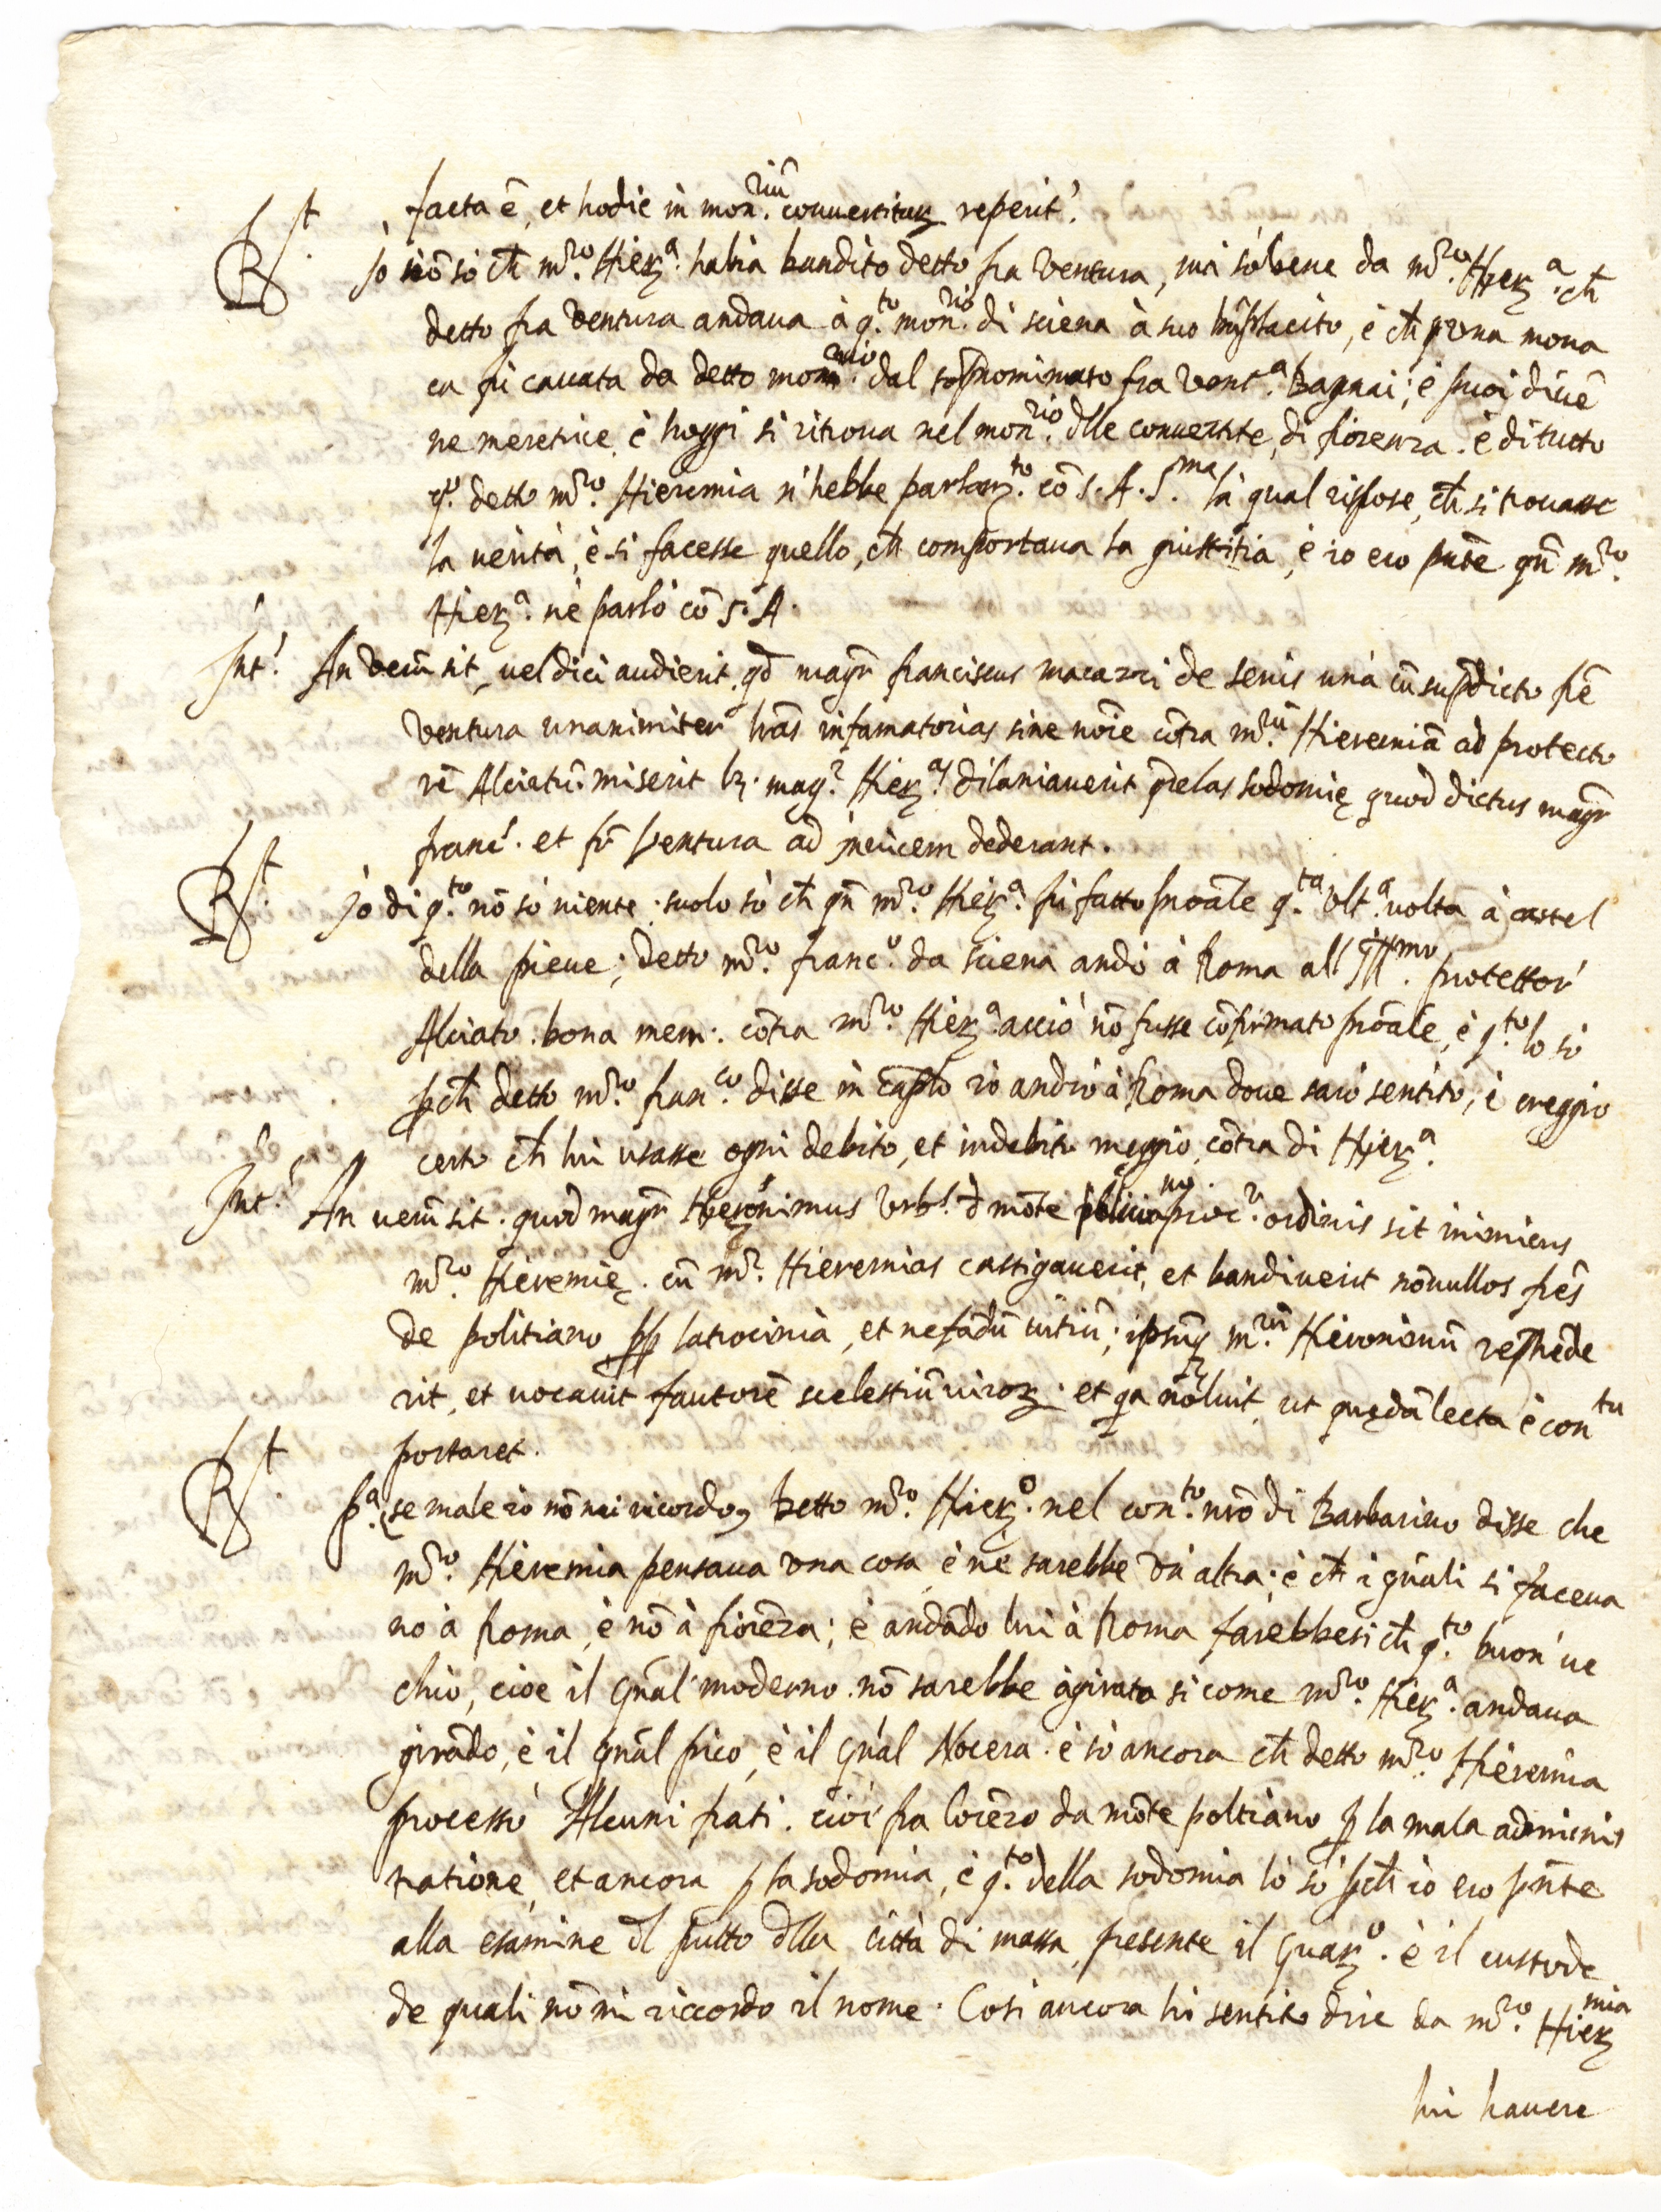 facta ē, et hodie in mon.riũ conuertitarũ reperit.
R.t Jo nō so ch̃ m.ro Hier.a habia bandito detto fra Ventura, ma so bene da m.ro Hier.a ch̃
detto fra Ventura andaua à q.to mon.rio di siena à suo bñplacito, è ch̃ p una mona
ca fu cauata da detto mon.rio dal sopnominato fra Vent.a Bagnai; è poi diuē
ne meretrice, è hoggi si ritroua nel mon.rio dlle conuertite, di fiorenza. è di tutto
q.o detto m.ro Hieremia n'hebbe parlam.to cō S. A. S.ma la qual rispose, ch̃ si trouasse
la uerità, è si facesse quello, ch̃ comportaua la giustitia, è io ero pñte qñ m.ro
Hier.a ne parlò cō S. A.
Int.' An verũ sit, uel dici audierit, qd magr franciscus macazzi de senis unà cũ supdicto frē
Ventura unanimiter lr̃as infamatorias sine noīe cōtra m.rũ Hieremiā ad protecto
rē Alciatũ miserit mag.r Hier.as dilaniauerit qrelas sodomię quod dictus magr
franc.' et fr̃ Ventura ad inuicem dederant.
R.t Jo di q.to nō so niente, suolo so ch̃ qñ m.ro Hier.a fù fatto puoāle q.ta ult.a uolta à castel
della pieue; detto m.ro franc.o da siena andò à Roma all' Ill.mo protettor'
Alciato. bona mem: cōtra m.ro Hier.a acciò nō fusse cōfirmato proāle, è q.to lo sò
pch̃ detto m.ro fran.co disse in caplo io andrò à Roma doue sarò sentito, è creggio
certo ch̃ lui usasse ogni debito, et indebito meggio, cōtra di Hier.a
Int.' An uerũ sit. quod magr Hieronimus Vrb.' d mōte politiano proc.r ordinis sit inimicus
m.ro Hieremię. cũ m.r Hieremias castigauerit, et bandiuerit nōnullos frēs
de politiano pp latrocinia, et nefādũ uitiũ; ipsũq m.rũ Hieronimũ repħēde
rit, et uocauit fautorē scelestiũ uirorũ. et qa noluit, ut quędā lecta è con.tu
portaret.
R.t P.a se male io nō mi ricordo, detto m.ro Hier.o nel con.to nr̃o di Barbarino disse che
m.ro Hieremia pensaua una cosa è ne sarebbe un altra. è ch̃ i gñali si faceua
no à Roma, è nō à fiorēza; è andādo lui à Roma farebbe si ch̃ q.to buon' ue
chio, cioe il gñal' moderno nō sarebbe agirato si come m.ro Hier.a andaua
girādo, è il gñal pico, è il gñal Nocera. è sò ancora ch̃ detto m.ro Hieremia
processò Alcuni frati. cioè fra lorēzo da mōte poltiano p la mala adminis
tratione, et ancora p la sodomia, è q.to della sodomia lo so pch̃ io ero pñte
alla esamine dl putto dlla città di massa, presente il guar.o è il custode
de quali nō mi riccordo il nome. Cosi ancora hò sentito dire da m.ro Hieremia
lui hauere